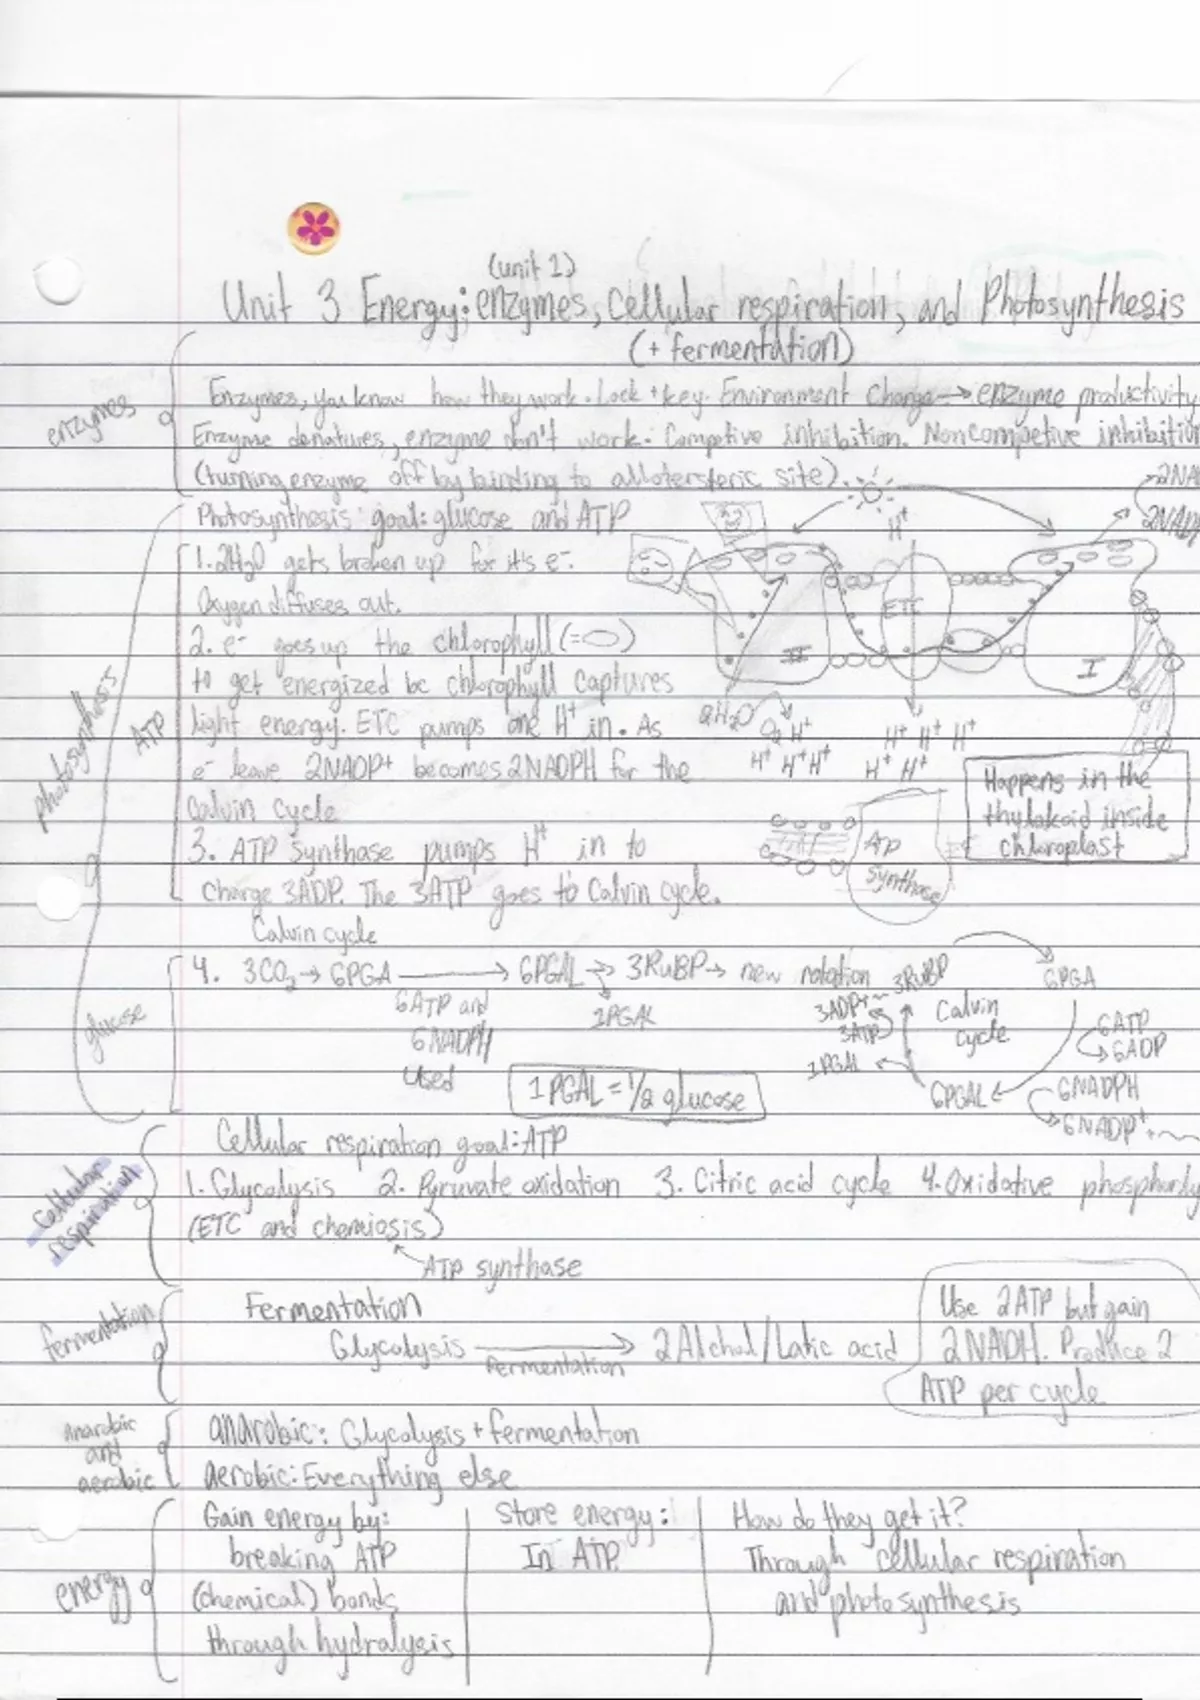 (unit 1)
Unit 3 Energy: enzymes, Cellular respiration, and Photosynthesis
(+ fermentation)
enzymes
Enzymes, you know how they work. Lock + key. Environment change → enzyme productivity
Enzyme denatures, enzyme don't work. Competive inhibition. Noncompetive inhibition
(turning enzyme off by binding to allotersteric site).
photosynthesis
ATP
Photosynthesis goal: glucose and ATP
1. 2H2O gets broken up for it's e-.
Oxygen diffuses out.
2. e- goes up the chlorophyll (= )
to get energized bc chlorophyll captures
light energy. ETC pumps one H+ in. As
e- leave 2NADP+ becomes 2NADPH for the
Calvin cycle
3. ATP Synthase pumps H+ in to
charge 3ADP. The 3ATP goes to Calvin cycle.
2NA
2NADP
H+
ETC
II
I
2H2O
O2 H+
H+ H+ H+
H+ H+ H+
H+ H+
ATP
Synthase
Happens in the
thylakoid inside
chloroplast
glucose
Calvin cycle
4. 3CO2 → 6PGA → 6PGAL → 3RuBP → new notation
6ATP and
6NADPH
used
1PGAL
1 PGAL = 1/2 glucose
3RuBP
6PGA
Calvin
cycle
3ADP+
3ATP
1PGAL
6PGAL
6ATP
6ADP
6NADPH
6NADP+
Cellular
respiration
Cellular respiration goal: ATP
1. Glycolysis 2. Pyruvate oxidation 3. Citric acid cycle 4. Oxidative phosphorly
(ETC and chemiosis)
ATP synthase
fermentation
Fermentation
Glycolysis → 2 Alchol/Latic acid
Fermentation
Use 2ATP but gain
2NADH. Produce 2
ATP per cycle
anarobic
and
aerobic
anarobic: Glycolysis + fermentation
aerobic: Everything else
energy
Gain energy by:
breaking ATP
(chemical) bonds
through hydralysis
Store energy:
In ATP
How do they get it?
Through cellular respiration
and photosynthesis